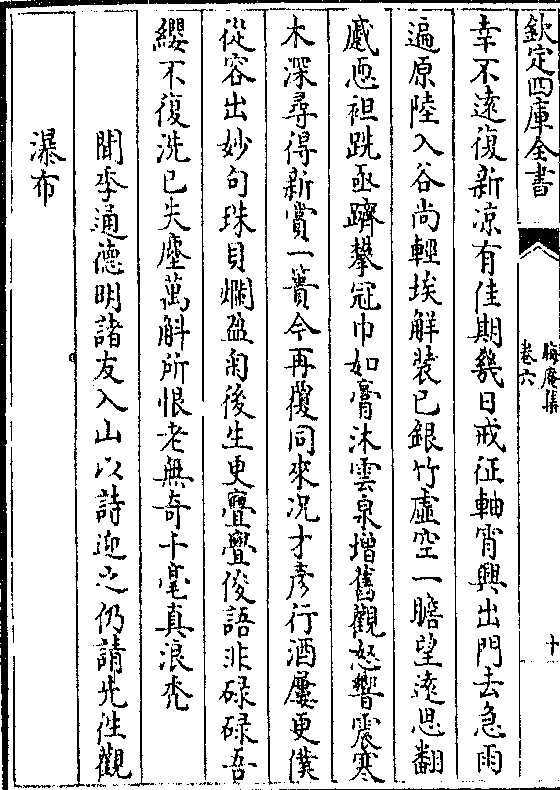 欽定四庫全書
晦庵集
卷六
十
幸不遠復新凉有佳期㡬日戒征軸宵興出門去急雨
遍原陸入谷尚輕埃解装已銀竹虛空一瞻望遠思翻
蹙恧袒跣亟躋攀冠巾如膏沐雲泉增舊觀怒響震寒
木深尋得新賞一簣今再覆同來况才彦行酒屢更僕
從容出妙句珠貝爛盈匊後生更亹亹俊語非碌碌吾
纓不復洗已失塵萬斛所恨老無奇千毫真浪秃
聞李通德明諸友入山以詩迎之仍請先徃觀
瀑布